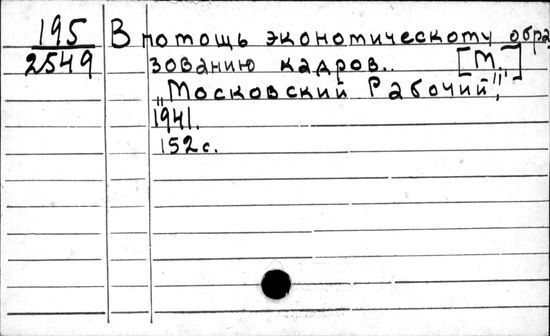 195
2549
В помощь экономическому обра
зованию кадров. [М.]
„Московский Рабочий",
1941.
152 с.